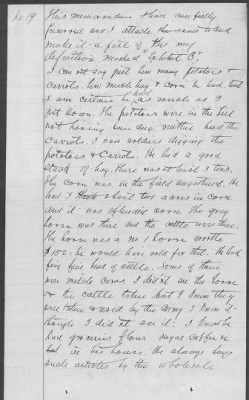 No 19
This memorandum I have carefully
prepared and I attach the same to and
make it a part of this my
deposition marked "Exhibit B".
I can not say just how many potatoes &
carrots, how much hay & corn he had, but
I am certain he had as much as I
put down. The potatoes were in the hill
not having been dug, neither had the
carrots. I saw soldiers digging the
potatoes & carrots. He had a good
stack of hay, there was at least 3 tons.
The corn was in the field ungathered. He
has I think about two acres in corn
and it was splendid corn. The gray
horse was there and the cattle were there.
The horse was a no 1 horse worth
$150. he would have sold for that. He had
five head of cattle. Some of them
were milch cows. I did not see the horse
& the cattle taken but I know they
were taken and used by the Army I know it
though I did not see it. I know he
had groceries flour sugar coffee &c
in his house. He always buys
such articles by the wholesale